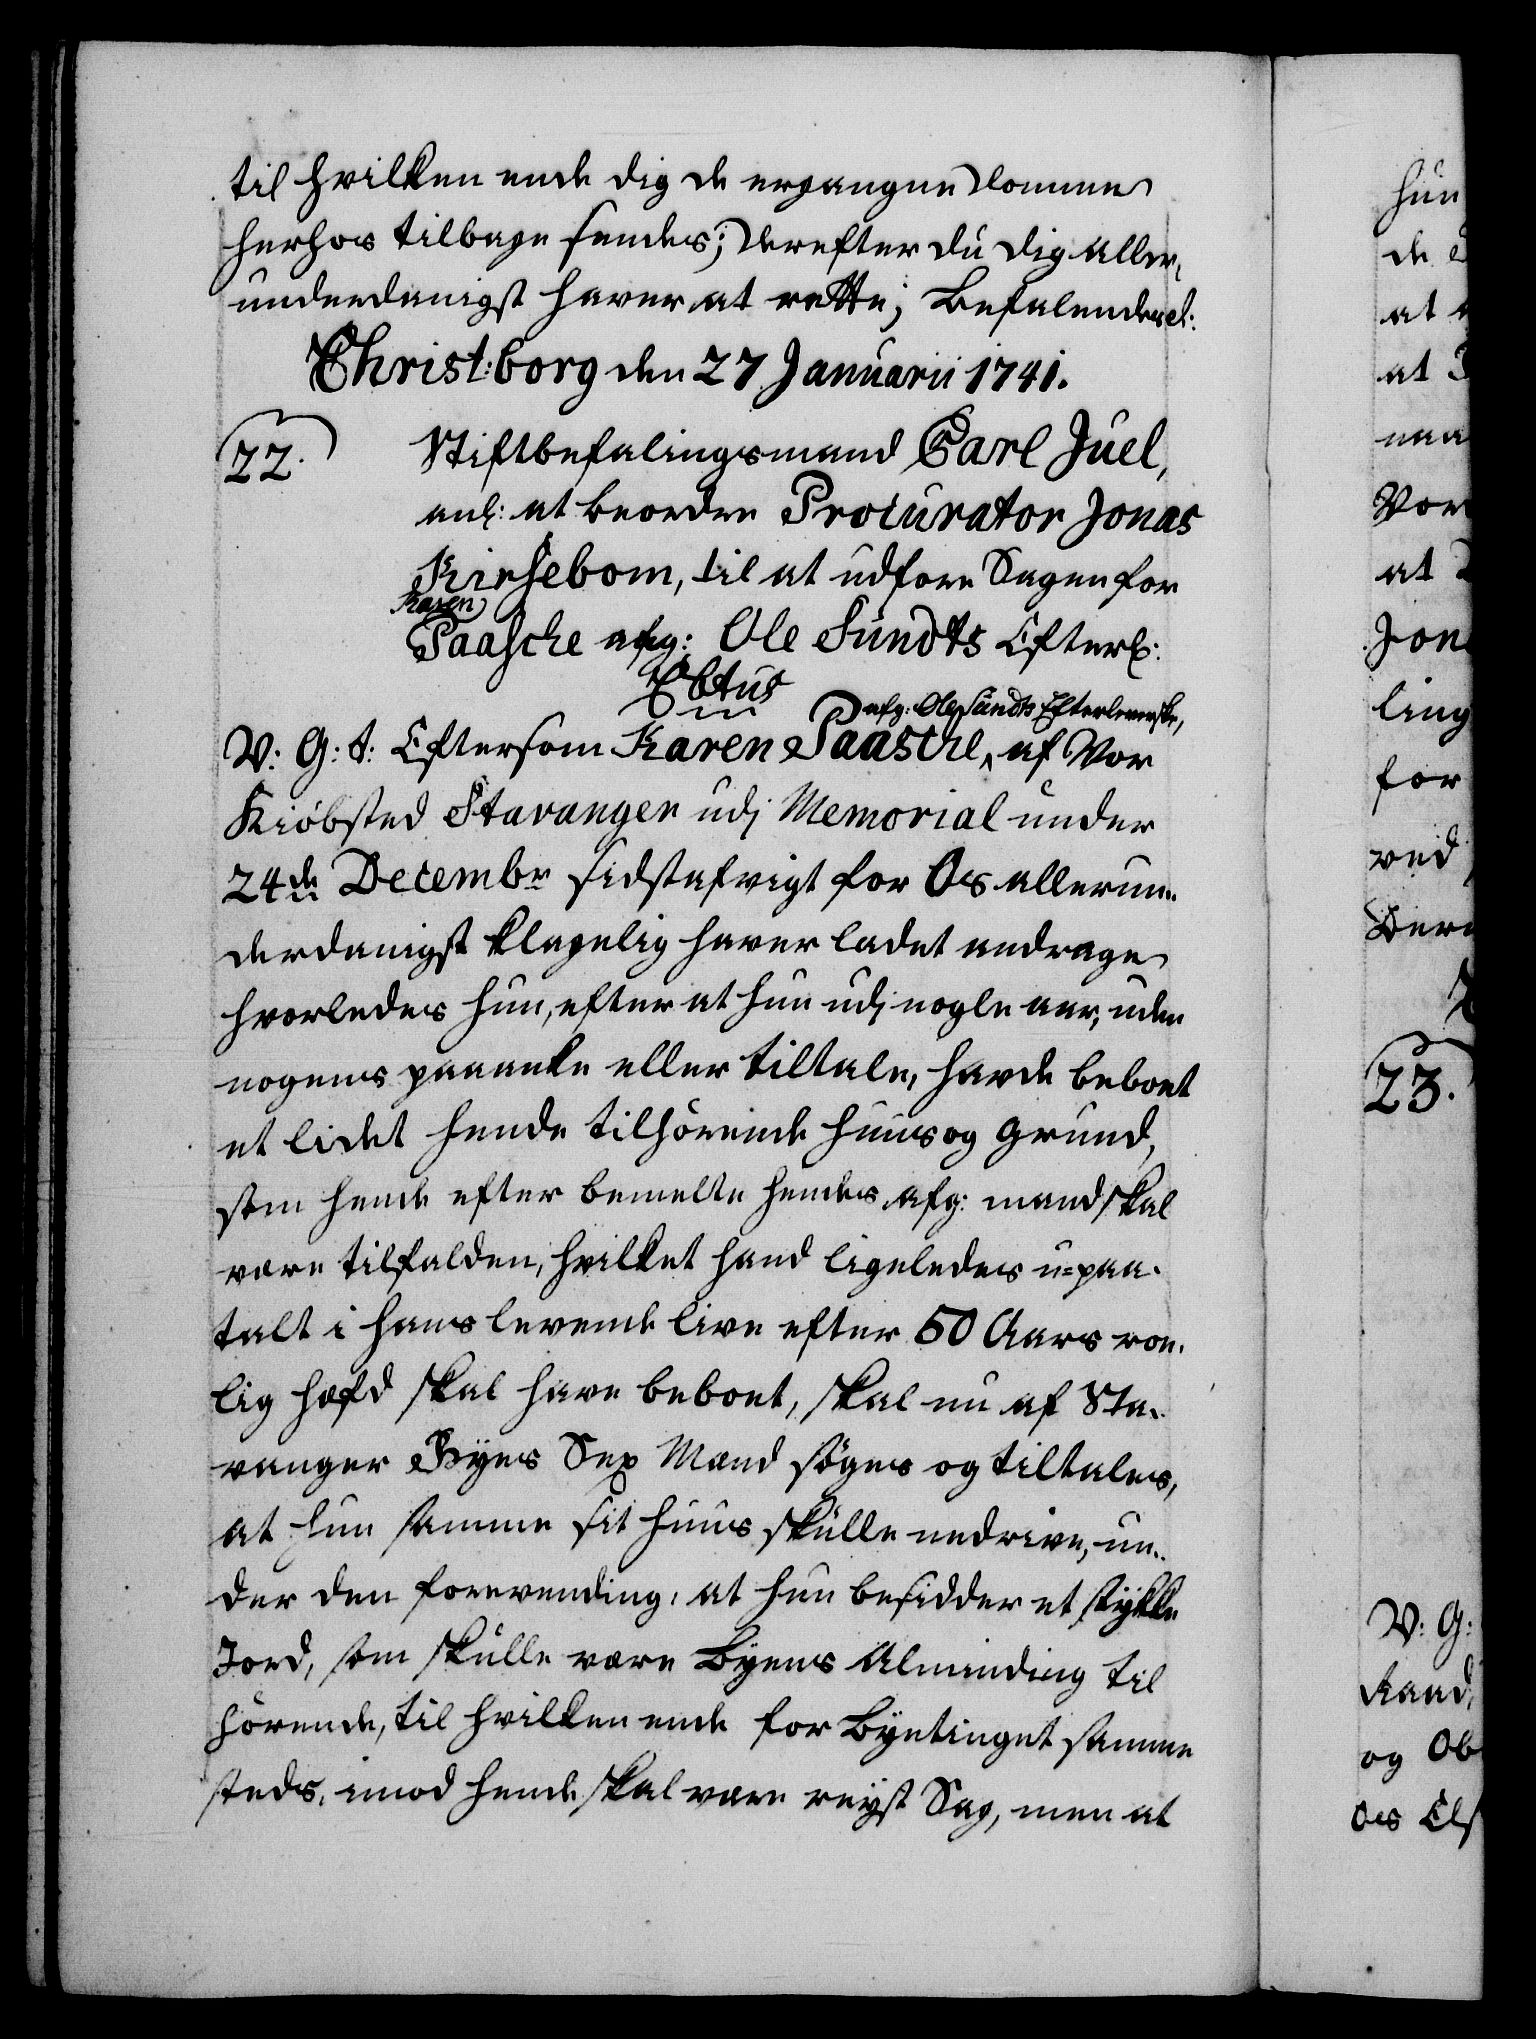 til hvilken ende dig de ergangne Domme
herhos tilbage sendes; Derefter du dig aller-
underdanigst haver at rette; Befalendes el:
Christ:borg den 27 Januarii 1741.
22. Stiftbefalingsmand Carl Juel,
anl: at beordre Procurator Jonas
Kirsebom, til at udføre Sagen for
Karen
Paasche afg: Ole Sundts Efterl:
V: G: t: Eftersom Karen Paasche, af Vor
afg: Ole Sundts Efterleverske,
Kiöbsted Stavanger udj Memorial under
24de Decembr sidstafvigt for Os allerun-
derdanigst klagelig haver ladet andrage
hvorledes hun, efter at hun udj nogle aar, uden
nogens paaanke eller tiltale, havde beboet
et lidet hende tilhörende Huus og Grund,
som hende efter bemelte hendes afg: mand skal
være tilfalden, hvilket hand ligeledes u-paa-
talt i hans levende live efter 50 Aars roe-
lig hæfd skal have beboet, skal nu af Sta-
vanger Byes Sex Mænd söges og tiltales,
at hun samme sit Huus skulle nedrive, un-
der den forevending, at hun besidder et stykke
Jord, som skulle være Byens Alminding til
hörende, til hvilken ende for Byetinget samme
steds, imod hende skal være reyst Sag, men at
hun
de
at
at
naa
Vor
at
Jon
ling
for
ved
23.
V: G:
og Ob